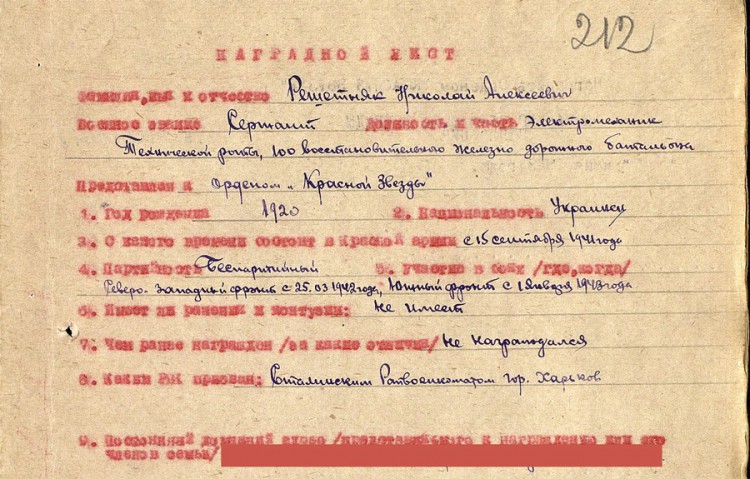 212
НАГРАДНОЙ ЛИСТ
Фамилия, имя и отчество Решетняк Николай Алексеевич
Военное звание Сержант Должность и часть Электромеханик
Технической роты, 100 восстановительного железно дорожного баталь она
Представлен к Орденом „Красной Звезды"
1. Год рождения 1920 2. Национальность Украинец
3. С какого времени состоит в Красной армии с 15 сентября 1941 года
4. Партийность Беспартийный 5. участие в боях /где, когда/
Северо-Западный фронт с 25.03 1942 года, Южный фронт с 1 января 1943 года
6. Имеет ли ранения и контузии: не имеет
7. Чем ранее награжден /за какие отличия/ не награждался
8. Каким РВК призван: Сталинским Райвоенкоматом гор. Харьков
9. Постоянный домашний адрес /представляемого к награждению или его
членов семьи/